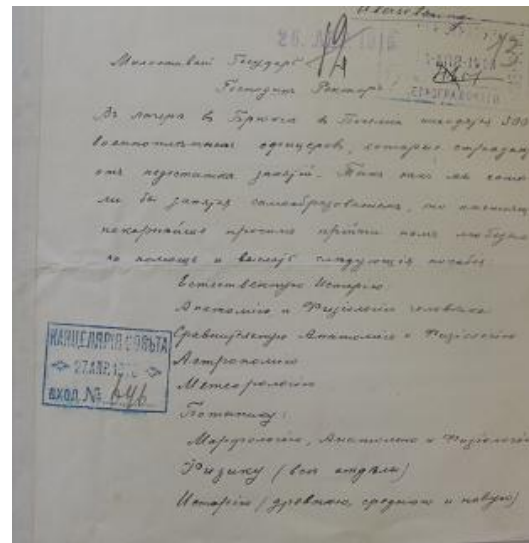 Милостивый Государь
Господинъ Ректоръ
Въ лагерѣ въ Брюксъ въ Богеміи находятся 300
военноплѣнныхъ офицеровъ, которые страдаютъ
отъ недостатка занятій. Такъ какъ мы
ли бы заняться самообразованіемъ, то настоящимъ
покорнѣйше просимъ прійти намъ любезно
на помощь и выслать слѣдующія пособія:
Естественную Исторію
Анатомію и Физіологію человѣка
Сравнительную Анатомію и Физіологію
Астрономію
Метеорологію
Ботанику:
Морфологію, Анатомію и Физіологію
Физику (все отдѣлы)
Исторію (древнюю, среднюю и новую)
КАНЦЕЛЯРІЯ СОВѢТА
27 АПР. 1916
ВХОД. № 646